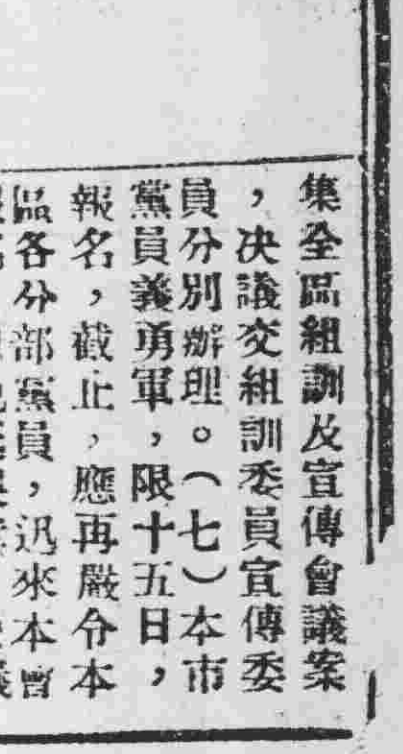 集全區組訓及宣傳會議案
，决議交組訓委員宣傳委
員分別辦理。（七）本市
黨員義勇軍，限十五日，
報名，截止，應再嚴令本
區各分部黨員，迅來本會